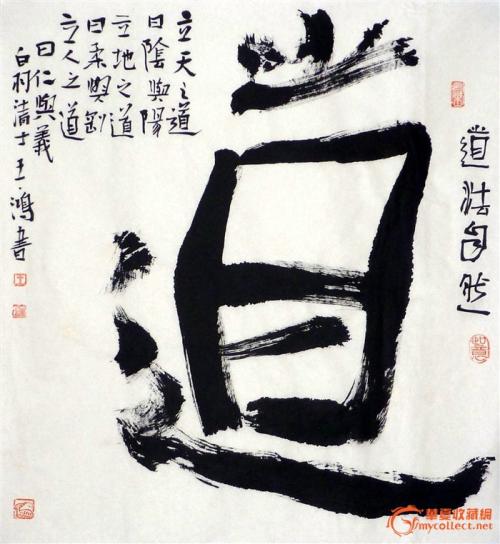 道法自然
道
立天之道
曰陰與陽
立地之道
曰柔與剛
立人之道
曰仁與義
白村清士王鴻書
華夏收藏網
mycollect.net